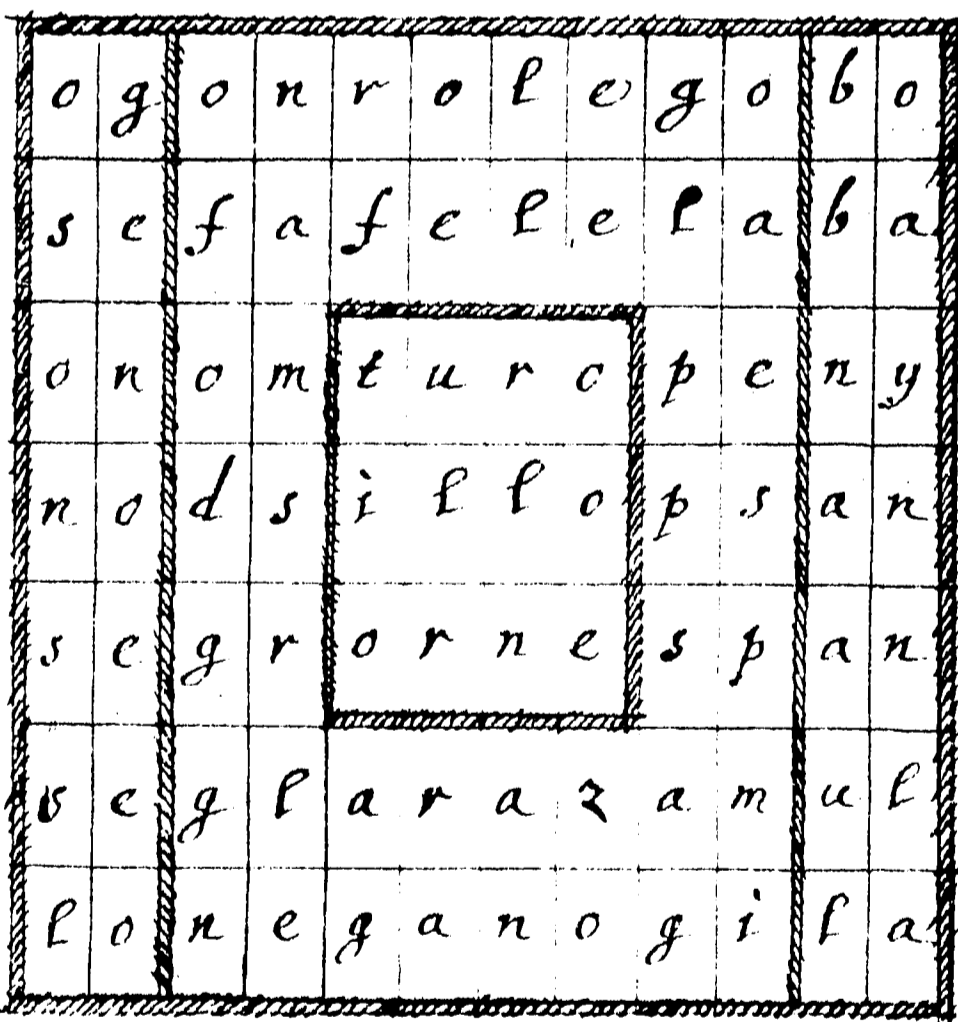 o g o n r o l e g o b o
s e f a f e l e l a b a
o n o m t u r o p e n y
n o d s i l l o p s a n
s e g r o r n e s p a n
s e g l a r a z a m u l
l o n e g a n o g i l a